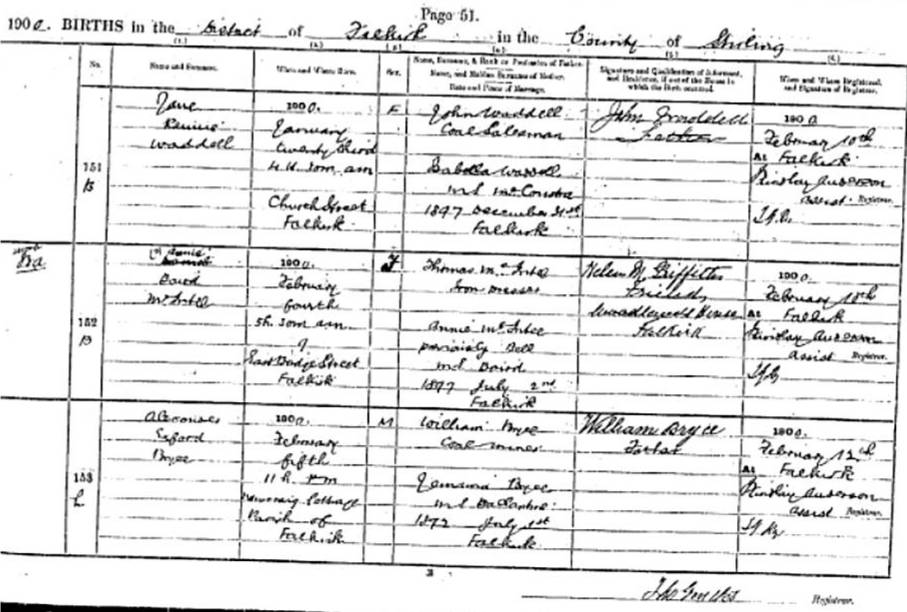 Page 51.
1900. BIRTHS in the District of Falkirk in the County of Stirling
(1.) (2.) (3.) (4.) (5.) (6.)
No. Name and Surname. When and Where Born. Sex. Name, Surname, & Rank or Profession of Father. Name, and Maiden Surname of Mother. Date and Place of Marriage. Signature and Qualification of Informant, and Residence, if out of the House in which the Birth occurred. When and Where Registered, and Signature of Registrar.
151
Jane
Rennie
Waddell
1900.
January
twenty third
4 h. 30m am
Church Street
Falkirk
F
John Waddell
Coal Salesman
Waddell
m.s.
1897 December 31st
Falkirk
John Waddell
Father
1900
February 10th
At Falkirk
Findlay Anderson
assist. Registrar.
152
Annie
Baird
1900.
February
fourth
5h. 30m am
Street
Falkirk
F
Thomas
Iron Dresser
Annie
previously Bell
m.s. Baird
1897 July 2nd
Falkirk
Helen M. Griffiths
Friend
House
Falkirk
1900.
February 10th
At Falkirk
Findlay Anderson
assist Registrar
153
Bryce
1900.
February
fifth
11 h. pm
Cottage
Parish of
Falkirk
M
William Bryce
Coal miner
Jemima Bryce
m.s.
July 1st
Falkirk
William Bryce
Father
1900.
February 12th
At Falkirk
Findlay Anderson
assist Registrar
Registrar.